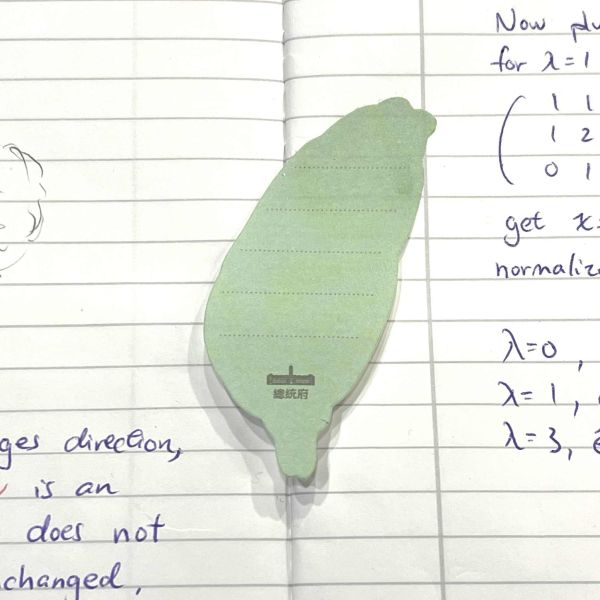 ges direction,
is an
does not
changed,
總統府
Now
for λ=1
1 1
1 2
0 1
get x
normaliz
λ=0 ,
λ=1 ,
λ=3,